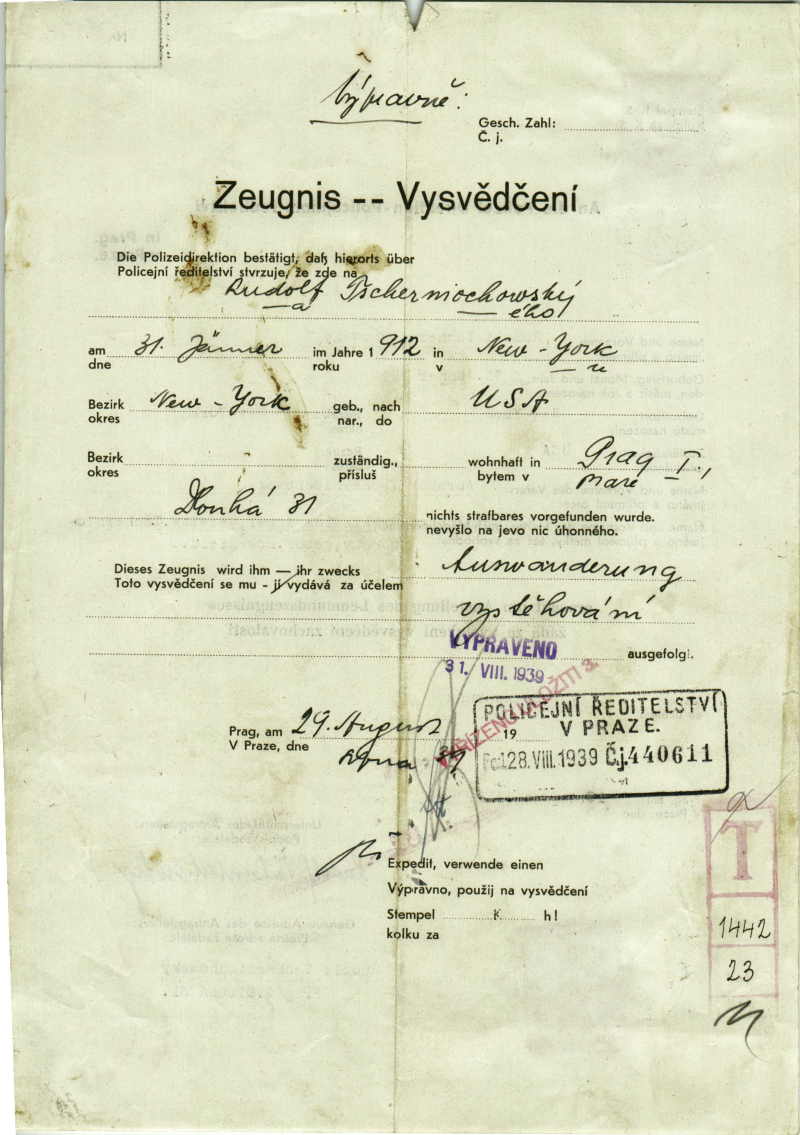 Výpravně:
Gesch. Zahl:
Č. j.
Zeugnis -- Vysvědčení
Die Polizeidirektion bestätigt, daß hierorts über
Policejní ředitelství stvrzuje, že zde na
Rudolf Tschernochowský
a ého
am 31. Jänner im Jahre 1912 in New-York
dne roku v u
Bezirk New-York geb., nach USA
okres nar., do
Bezirk zuständig., wohnhaft in Prag I.,
okres přísluš bytem v Praze
Dlouhá 31 nichts strafbares vorgefunden wurde.
nevyšlo na jevo nic úhonného.
Dieses Zeugnis wird ihm — ihr zwecks Auswanderung
Toto vysvědčení se mu - jí vydává za účelem
vystěhování
VYPRAVENO ausgefolgt.
31. VIII. 1939
POLICEJNÍ ŘEDITELSTVÍ
V PRAZE.
28.VIII.1939 Č.j.440611
Prag, am 29. August 19
V Praze, dne srpna 39
Expedit, verwende einen
Výpravno, použij na vysvědčení
Stempel K h!
kolku za
T
1442
23